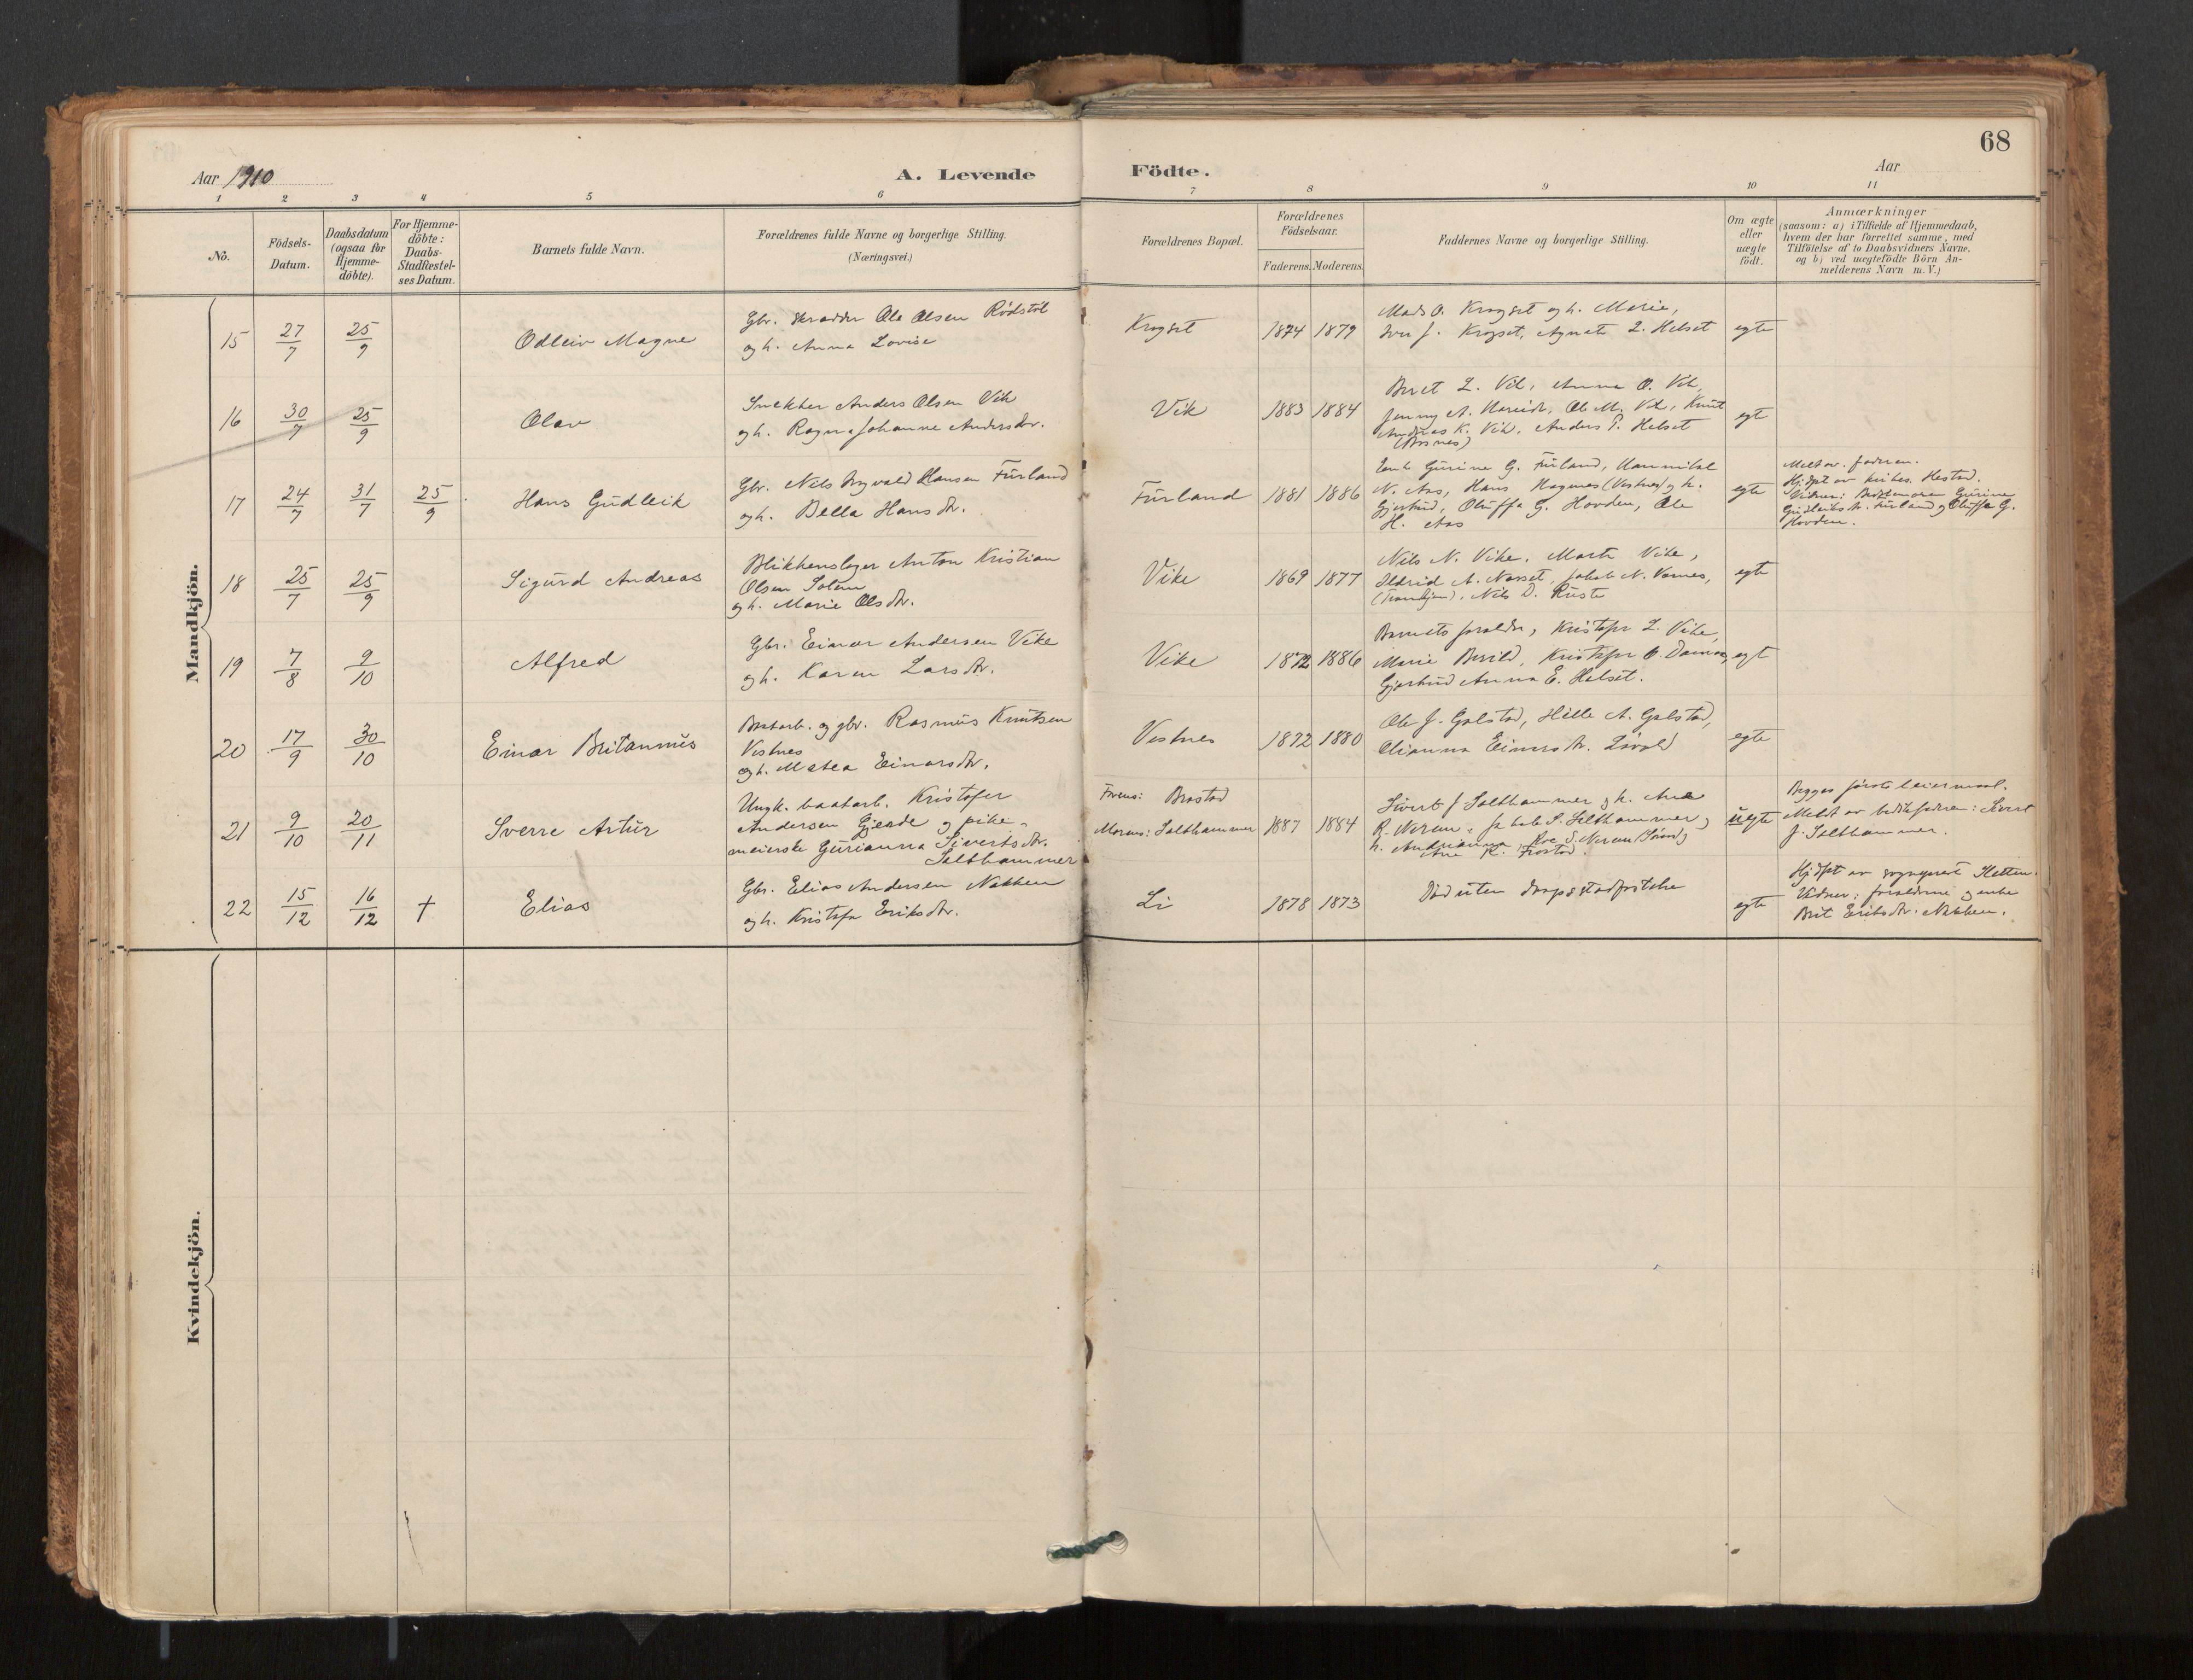 68
Aar 1910
A. Levende
Födte.
Aar
1 2 3 4 5 6 7 8 9 10 11
No.
Födsels-
Datum.
Daabsdatum
(ogsaa for
Hjemme-
döbte).
For Hjemme-
döbte:
Daabs-
Stadfæstel-
ses Datum.
Barnets fulde Navn.
Forældrenes fulde Navne og borgerlige Stilling.
(Næringsvei.)
Forældrenes Bopæl.
Forældrenes
Födselsaar.
Faderens. Moderens.
Faddernes Navne og borgerlige Stilling.
Om ægte
eller
uægte
födt.
Anmærkninger
(saasom: a) i Tilfælde af Hjemmedaab,
hvem der har forrettet samme, med
Tilföielse af to Daabsvidners Navne,
og b) ved uægtefödte Börn An-
melderens Navn m. V.)
Mandkjön.
15
27/7
25/9
Odleiv Magne
Gbr. skrædder Ole Olsen Rödstöl
og h. Anna Lovise
Krogset
1874 1879
Mads O. Krogset og h. Marie,
Iver J. Krogset, Agnate L. Helset
egte
16
30/7
25/9
Olav
Snekker Anders Olsen Vik
og h. Ragna Johanne Andersdtr.
Vik
1883 1884
Beret L. Vik, Anna O. Vik,
Jenny A. Hareide, Ole M. Vik, Knut
Andreas K. Vik, Anders P. Helset
egt
17
24/7
31/7
25/9
Hans Gudleik
Gbr. Nils Ingvald Hansen Furland
og h. Bella Hansdtr.
Furland
1881 1886
Enke Gurine G. Furland, Hannibal
N. Aas, Hans Hagnes (Vestnes) og h.
Gjertrud, Oluffa G. Hovden, Ole
H. Aas
egte
Meldt av faderen.
Hjdpt av kirkes. Hestad.
Vidner: Bestemoren Gurine
Gudleiksdtr. Furland og Oluffa G.
Hovden.
18
25/7
25/9
Sigurd Andreas
Blikkenslager Anton Kristian
Olsen Solem
og h. Marie Olsdtr.
Vike
1869 1877
Nils N. Vike, Marte Vike,
Ildrid A. Nesset, Jakob N. Varnes,
(Trondhjem), Nils D. Ruste
egte
19
7/8
9/10
Alfred
Gbr. Einar Andersen Vike
og h. Karen Larsdtr.
Vike
1872 1886
Barnets foreldre, Kristofer L. Vike,
Marie Berild, Kristofer O. Daurmo,
Gjertrud Anna E. Helset.
egt
20
17/9
30/10
Einar Britannus
Baatarb. og gbr. Rasmus Knutsen
Vestnes
og h. Matea Einarsdtr.
Vestnes
1872 1880
Ole J. Gjelstad, Hille A. Gjelstad,
Olianna Einarsdtr. Lövold
egte
21
9/10
20/11
Sverre Artur
Ungk. baatarb. Kristofer
Andersen Gjerde og pike-
meierske Gurianna Sivertsdtr.
Salthammer
Farens: Brastad
Morens: Salthammer
1887 1884
Sivert J Salthammer og h. Ane
R. Nerem, Jakob S. Salthammer og
h. Andrianna, Roe S. Nerem
Ane K. Frostad
uegte
Begges første leiermaal.
Meldt av bestefaderen: Sivert
J. Salthammer.
22
15/12
16/12
†
Elias
Gbr. Elias Andersen Nakken
og h. Kristofa Eriksdtr.
Li
1878 1873
Död uten daapsstadfestelse
egte
Hjdpt av sogneprest Kletten.
Vidner: foreldrene og enke
Brit Eriksdtr. Nakken.
Kvindekjön.